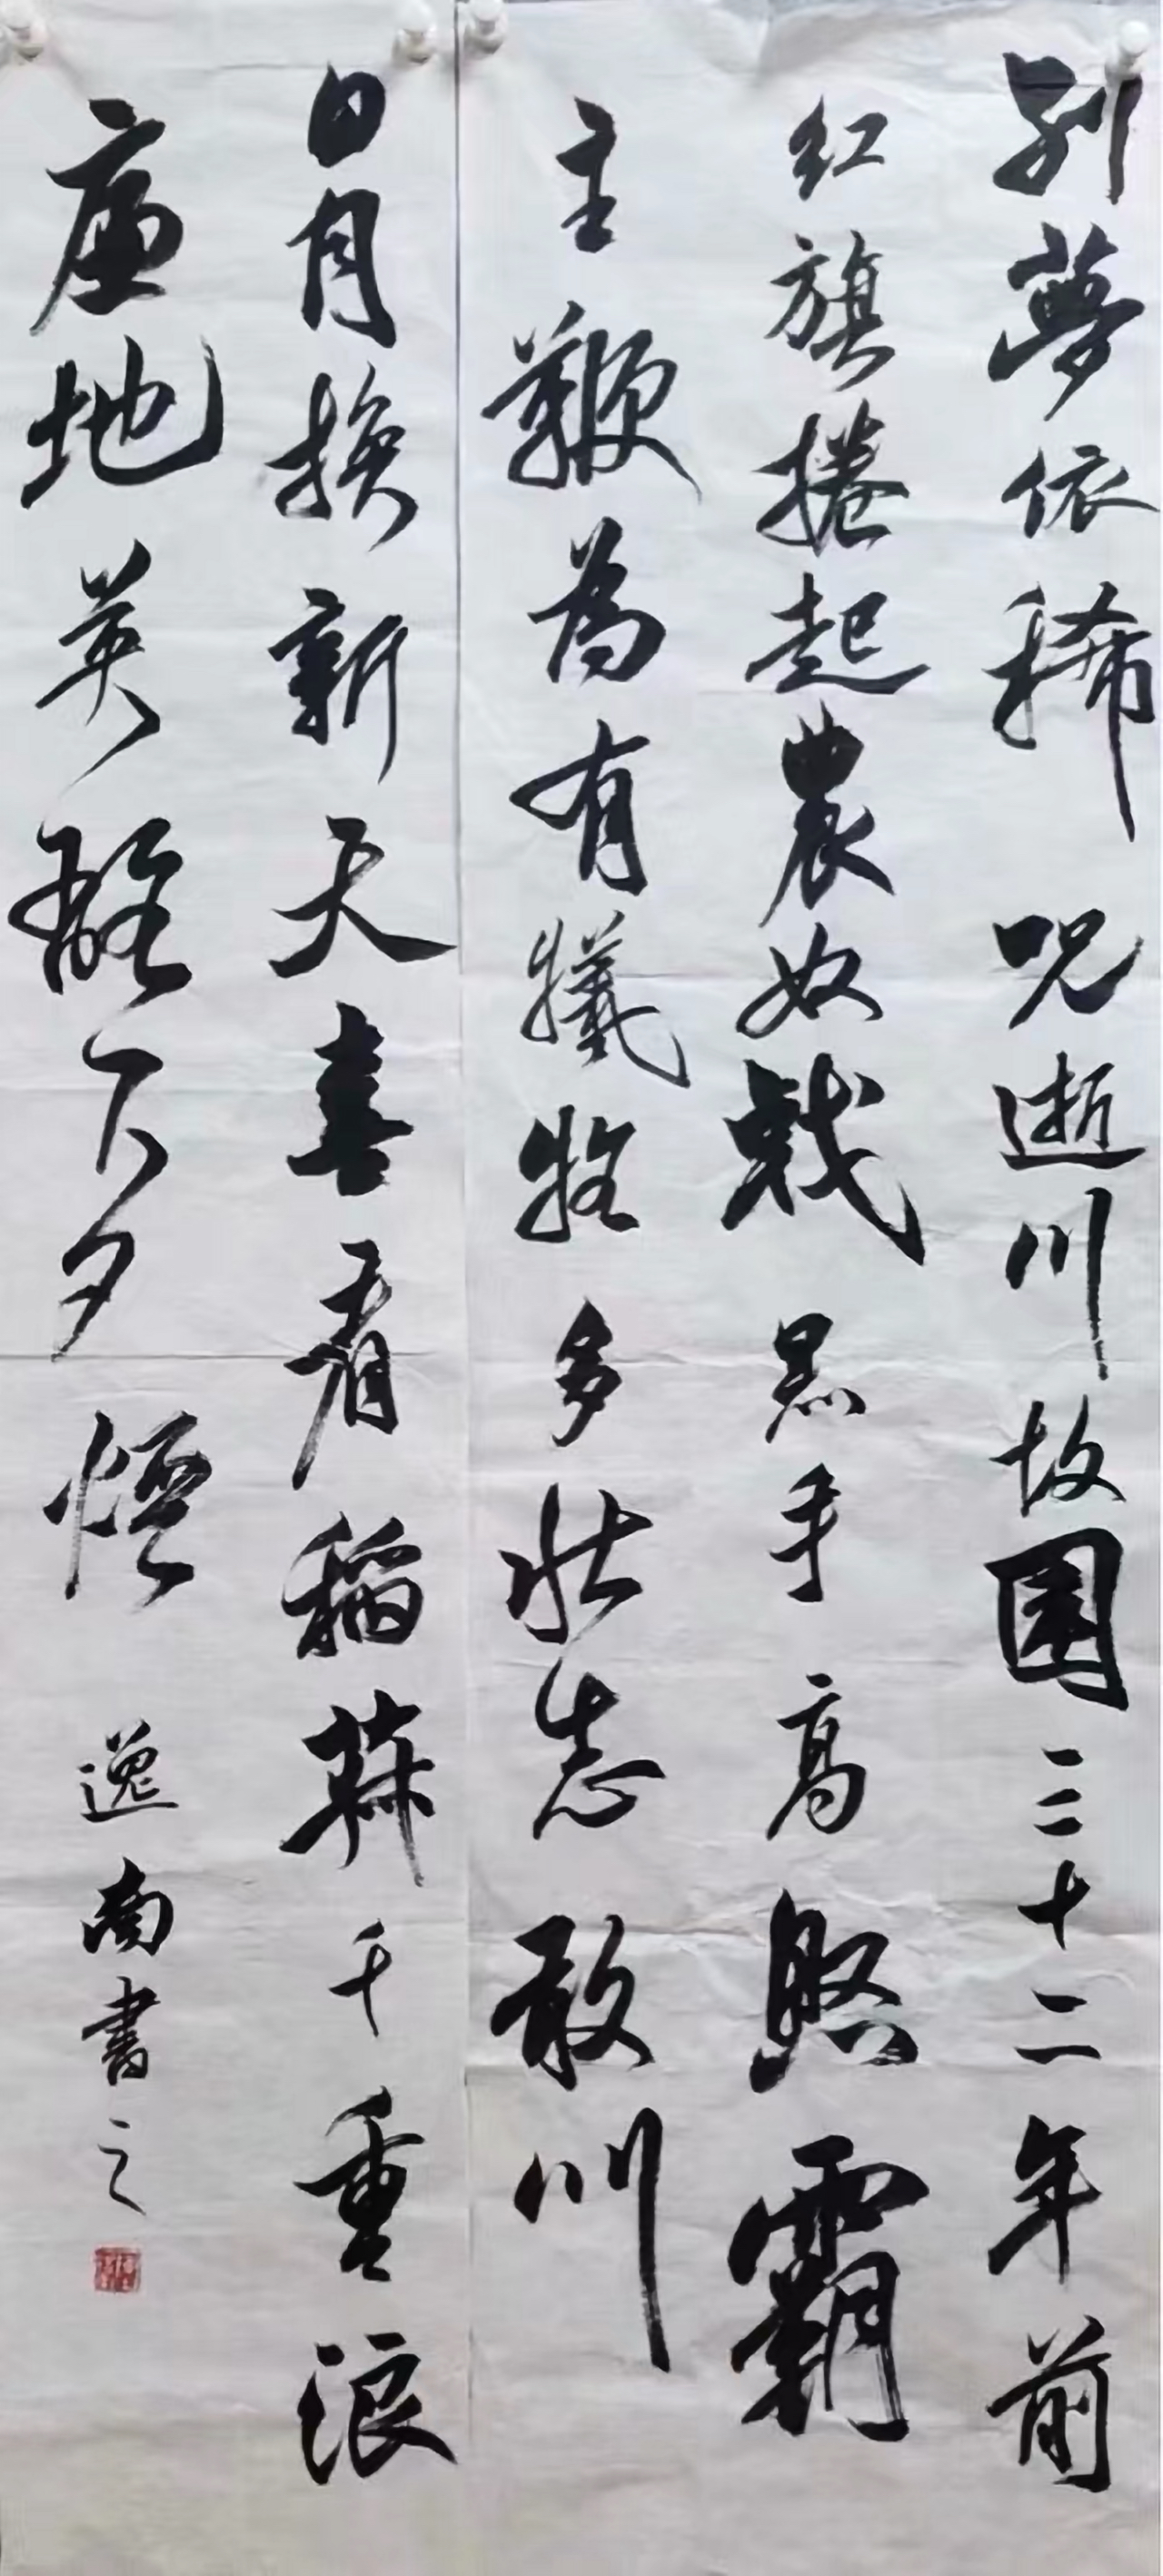 別夢依稀呪逝川故園三十二年前
红旗捲起農奴戟黑手高懸霸
主鞭為有犧牲多壮志敢叫
日月换新天喜看稻菽千重浪
遍地英雄下夕煙
逸南書之